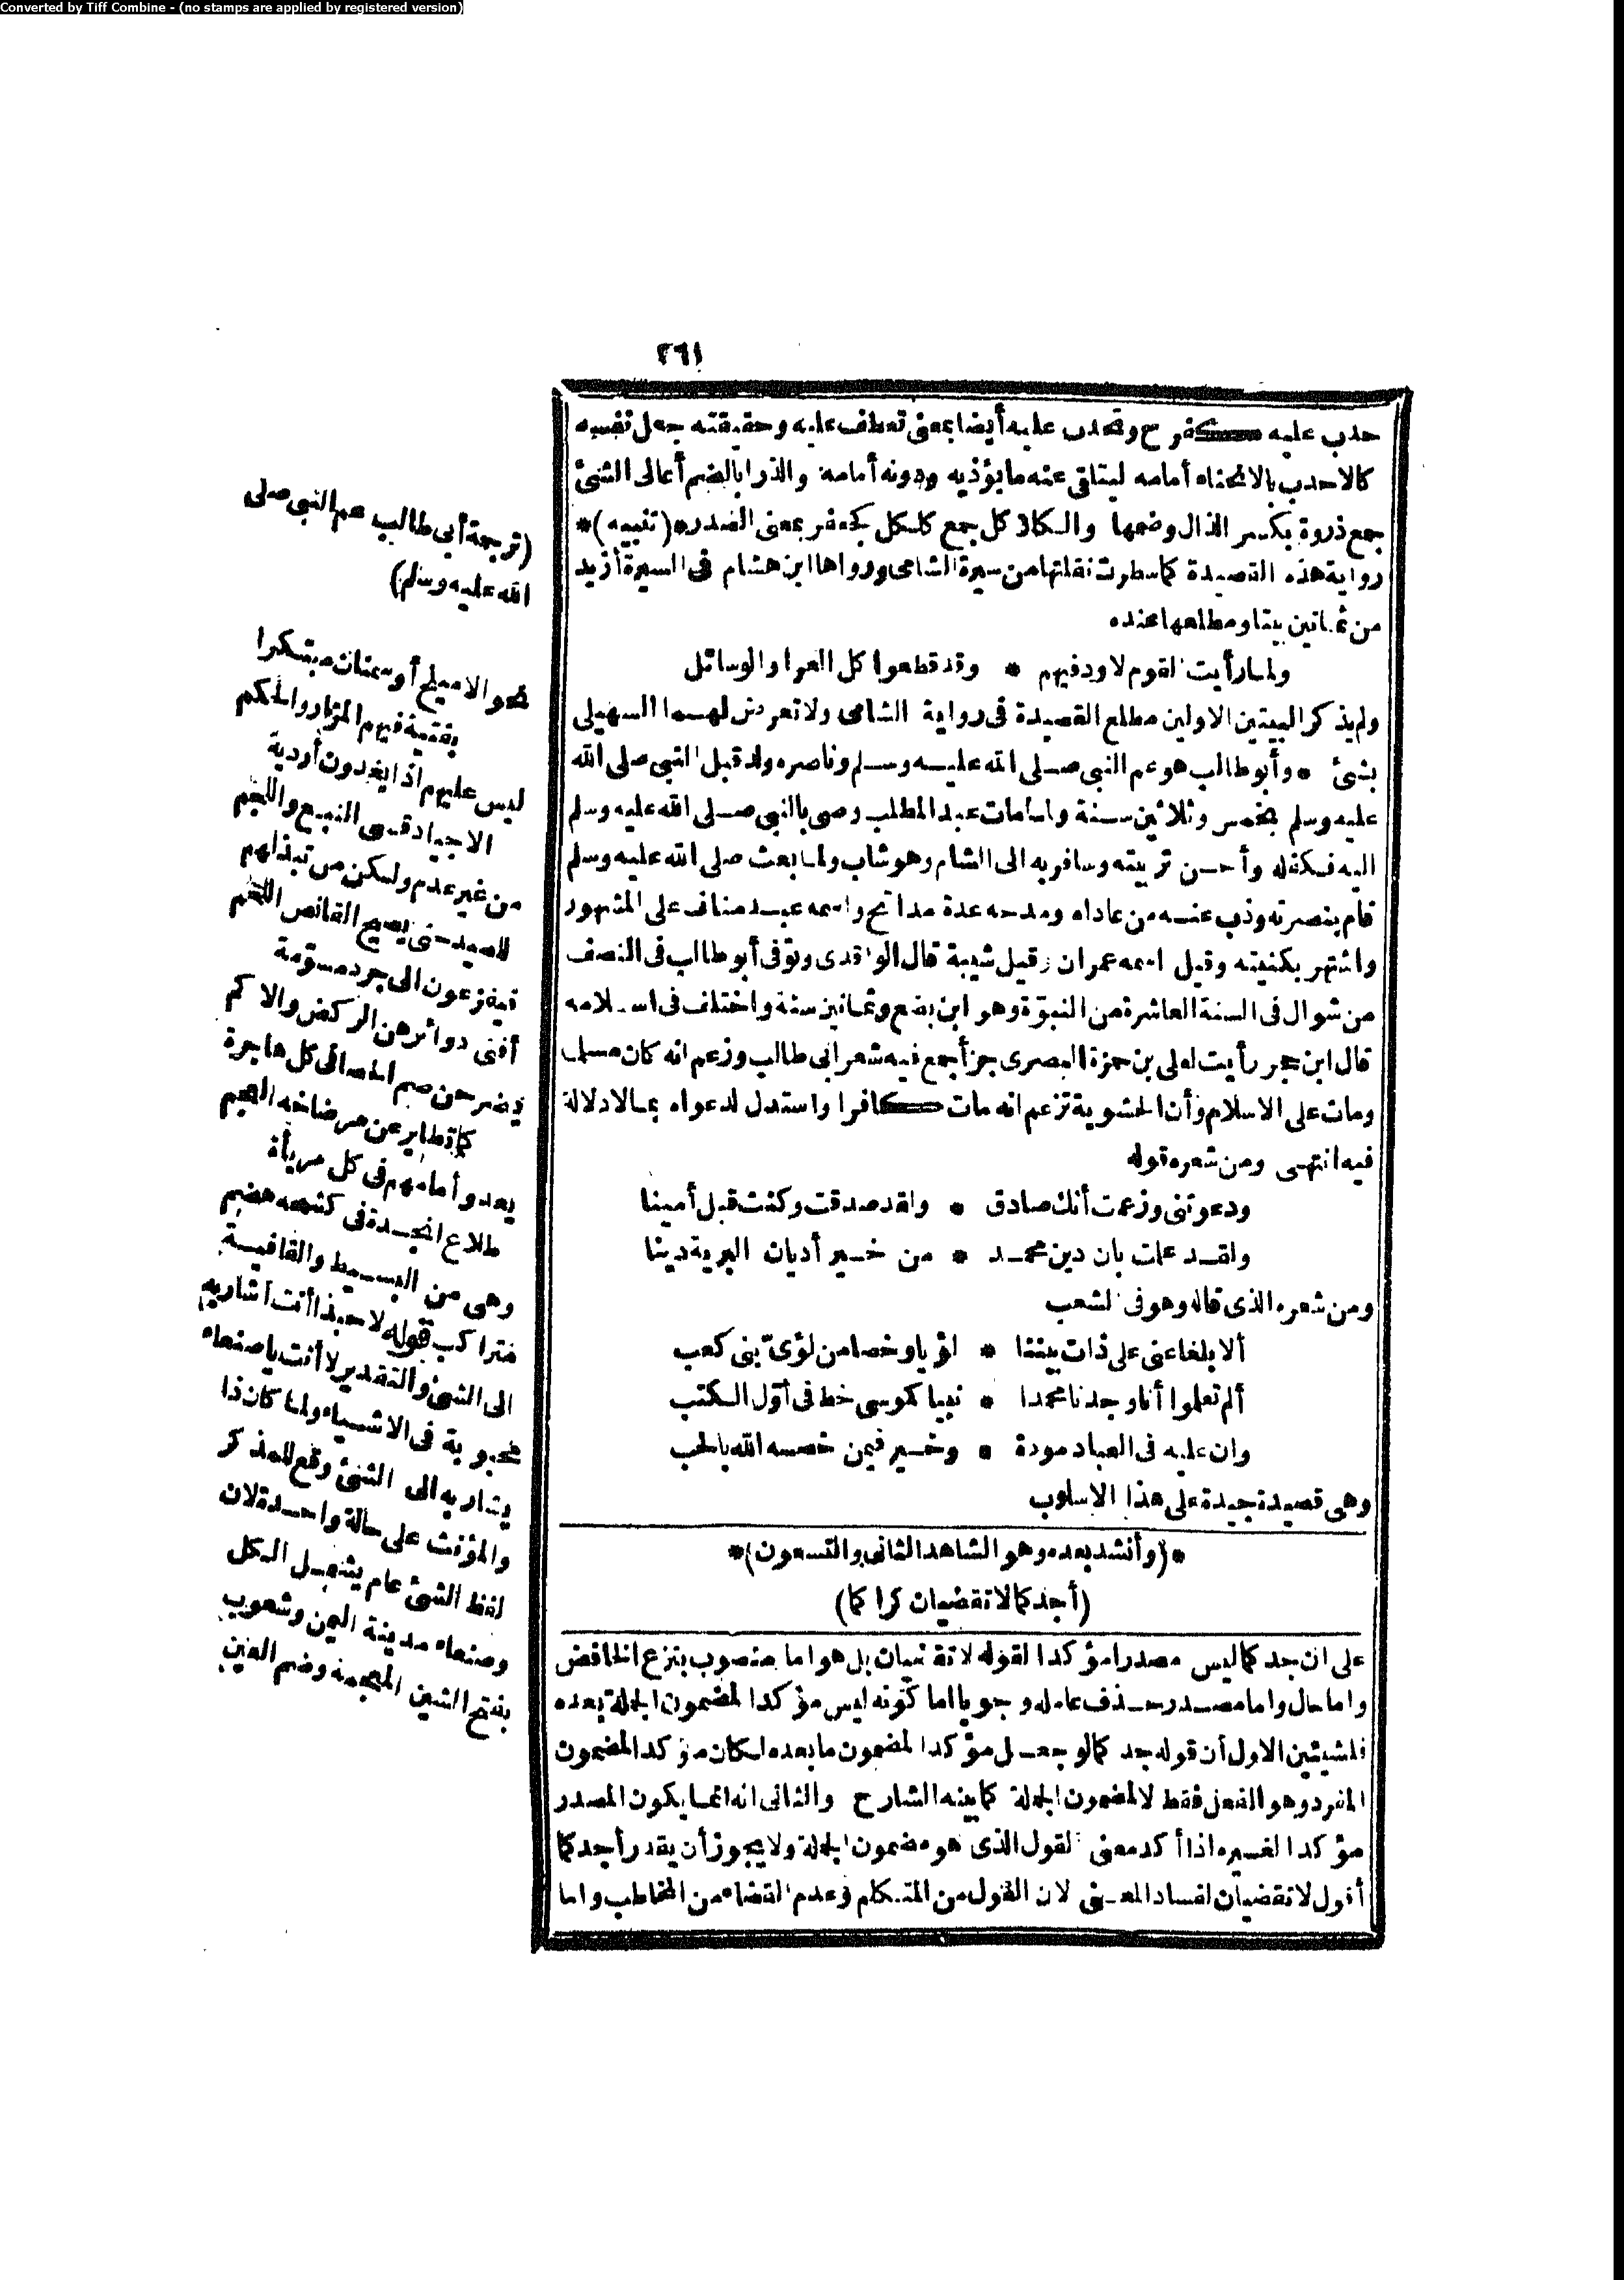 Converted by Tiff Combine - (no stamps are applied by registered version)
٢٦١
حدب عليه كفرح وتحدب عليه أيضا بمعنى تعطف عليه وحقيقته جعل نفسه
كالاحدب بالانحناء أمامه ليتلقى عنه ما يؤذيه ودونه أمامه والذرا بالضم أعالى الشئ
جمع ذروة بكسر الذال وضمها والكلاكل جمع كلكل كجعفر بمعنى الصدر*(تنبيه)*
رواية هذه القصيدة كما سطرت نقلتها من سيرة الشامى ورواها ابن هشام فى السيرة أزيد
من ثمانين بيتا ومطلعها عنده
ولما رأيت القوم لا ود فيهم * وقد قطعوا كل العرا والوسائل
ولم يذكر البيتين الاولين مطلع القصيدة فى رواية الشامى ولا تعرض لهما السهيلى
بشئ * وأبو طالب هو عم النبى صلى الله عليه وسلم وناصره ولد قبل النبى صلى الله
عليه وسلم بخمس وثلاثين سنة ولما مات عبد المطلب وصى بالنبى صلى الله عليه وسلم
اليه فكفله وأحسن تربيته وسافر به الى الشام وهو شاب ولما بعث صلى الله عليه وسلم
قام بنصرته وذب عنه من عاداه ومدحه عدة مدائح واسمه عبد مناف على المشهور
واشتهر بكنيته وقيل اسمه عمران وقيل شيبة قال الواقدى وتوفى أبو طالب فى النصف
من شوال فى السنة العاشرة من النبوّة وهو ابن بضع وثمانين سنة واختلف فى اسلامه
قال ابن حجر رأيت لعلى بن حمزة البصرى جزأ جمع فيه شعر أبى طالب وزعم انه كان مسلما
ومات على الاسلام وأن الحشوية تزعم انه مات كافرا واستدل لدعواه بما لا دلالة
فيه انتهى ومن شعره قوله
ودعوتنى وزعمت أنك صادق * ولقد صدقت وكنت قبل أمينا
ولقد علمت بان دين محمد * من خير أديان البرية دينا
ومن شعره الذى قاله وهو فى الشعب
ألا بلغا عنى على ذات بيننا * لؤيا وخصا من لؤىّ بنى كعب
ألم تعلموا أنا وجدنا محمدا * نبيا كموسى خط فى أوّل الكتب
وان عليه فى العباد مودة * وخير فيمن خصه الله بالحب
وهى قصيدة جيدة على هذا الاسلوب
*(وأنشد بعده وهو الشاهد الثانى والتسعون)*
(أجدكما لا تقضيان كراكما)
على ان جدكما ليس مصدرا مؤكدا لقوله لا تقضيان بل هو اما منصوب بنزع الخافض
واما حال واما مصدر حذف عامله وجوبا اما كونه ليس مؤكدا لمضمون الجملة بعده
فلشيئين الاول أن قوله جدكما لو جعل مؤكدا لمضمون ما بعده لكان مؤكدا لمضمون
المفرد وهو الفعل فقط لا لمضمون الجملة كما بينه الشارح والثانى انه انما يكون المصدر
مؤكدا لغيره اذا أكد معنى القول الذى هو مضمون الجملة ولا يجوز أن يقدر أجدكما
أقول لا تقضيان لفساد المعنى لان القول من المتكلم وعدم القضاء من المخاطب واما
(ترجمة أبى طالب عم النبى صلى
الله عليه وسلم)
نحو الاميلح أو سمنان مبتكرا
بفتية فيهم المرّار والحكم
ليس عليهم اذا يغدون أردية
الا جياد قسى النبع واللجم
من غير عدم ولكن من تبذلهم
للصيد حتى يصيح القانص اللحم
فيفزعون الى جرد مسوّمة
أفنى دوابرهن الركض والاكم
يرضحن صم الحصا فى كل هاجرة
كما تطاير عن مرضاخه العجم
يعدو أمامهم فى كل مربأة
طلاع أنجدة فى كشحه هضم
وهى من البسيط والقافية
متراكب قوله لا حبذا أنت اشار به
الى الشئ والتقدير لا أنت يا صنعاء
محبوبة فى الاشياء ولما كان ذا
يشار به الى الشئ وقع للمذكر
والمؤنث على حالة واحدة لان
لفظ الشئ عام يشمل الكل
وصنعاء مدينة اليمن وشعوب
بفتح الشين المعجمة وضم العين